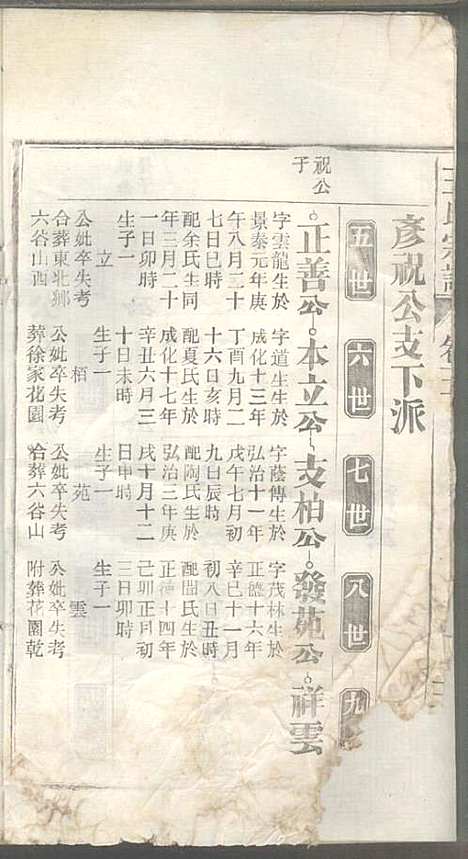 彥祝公支下派
五世
六世
七世
八世
九
祝公子
正善公
本立公
支柏公
發苑公
祥雲
字雲龍生於
景泰元年庚
午八月二十
七日巳時
配余氏生同
年三月二十
一日卯時
生子一
立
公妣卒失考
合葬東北鄉
六谷山西
字道生生於
成化十三年
丁酉九月二
十六日亥時
配夏氏生於
成化十七年
辛丑六月三
十日未時
生子一
栢
公妣卒失考
葬徐家花園
字蔭傳生於
弘治十一年
戊午七月初
九日辰時
配陶氏生於
弘治三年庚
戌十月十二
日申時
生子一
苑
公妣卒失考
合葬六谷山
字茂林生於
正德十六年
辛巳十一月
初八日丑時
配閻氏生於
正德十四年
己卯正月初
三日卯時
生子一
雲
公妣卒失考
附葬花園乾